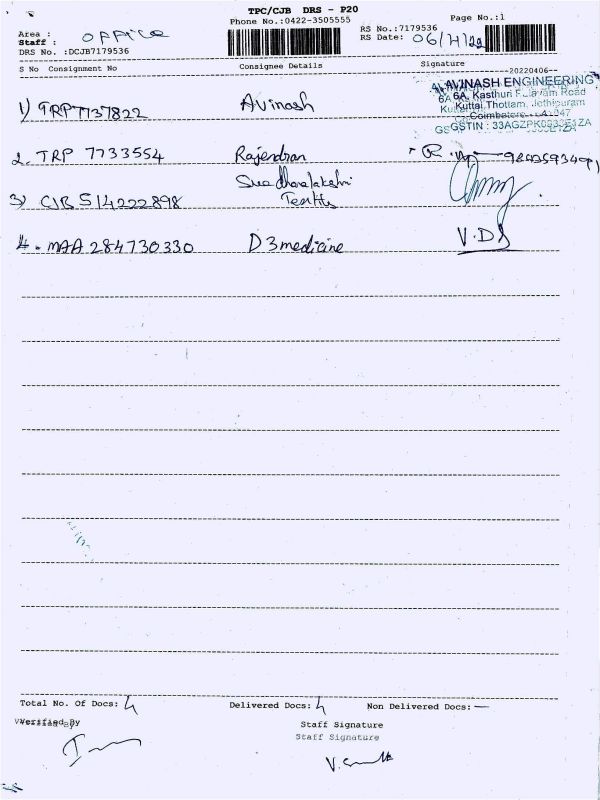 TPC/CJB DRS - P20
Phone No.:0422-3505555
Page No.:1
Area : office
Staff :
DRS No. :DCJB7179536
RS No.:7179536
RS Date: 06/4/22
S No Consignment No Consignee Details Signature
--20220406--
AVINASH ENGINEERING
6A, Kasthuri Road
Kuttai Thottam, Jothipuram
Coimbatore - 047
GSTIN : 33AGZPK
1) TRP7737822 Avinash
2. TRP 7733554 Rajendran
3) CJB514222898 Sree dhanalakshmi
Textiles
4. MAA 284730330 D3medicine V.D
Total No. Of Docs: 4 Delivered Docs: 4 Non Delivered Docs: —
Verified By
Staff Signature
Staff Signature